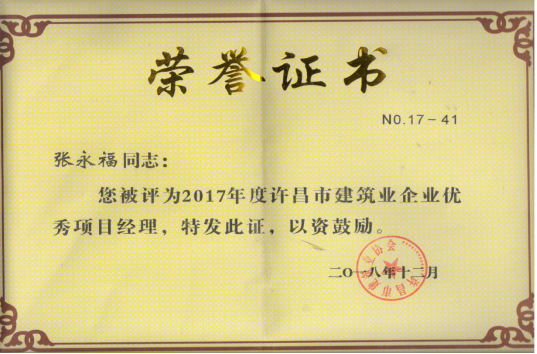 荣誉证书
NO.17-41
张永福同志：
您被评为2017年度许昌市建筑业企业优
秀项目经理，特发此证，以资鼓励。
二〇一八年十二月
许昌市建筑业协会